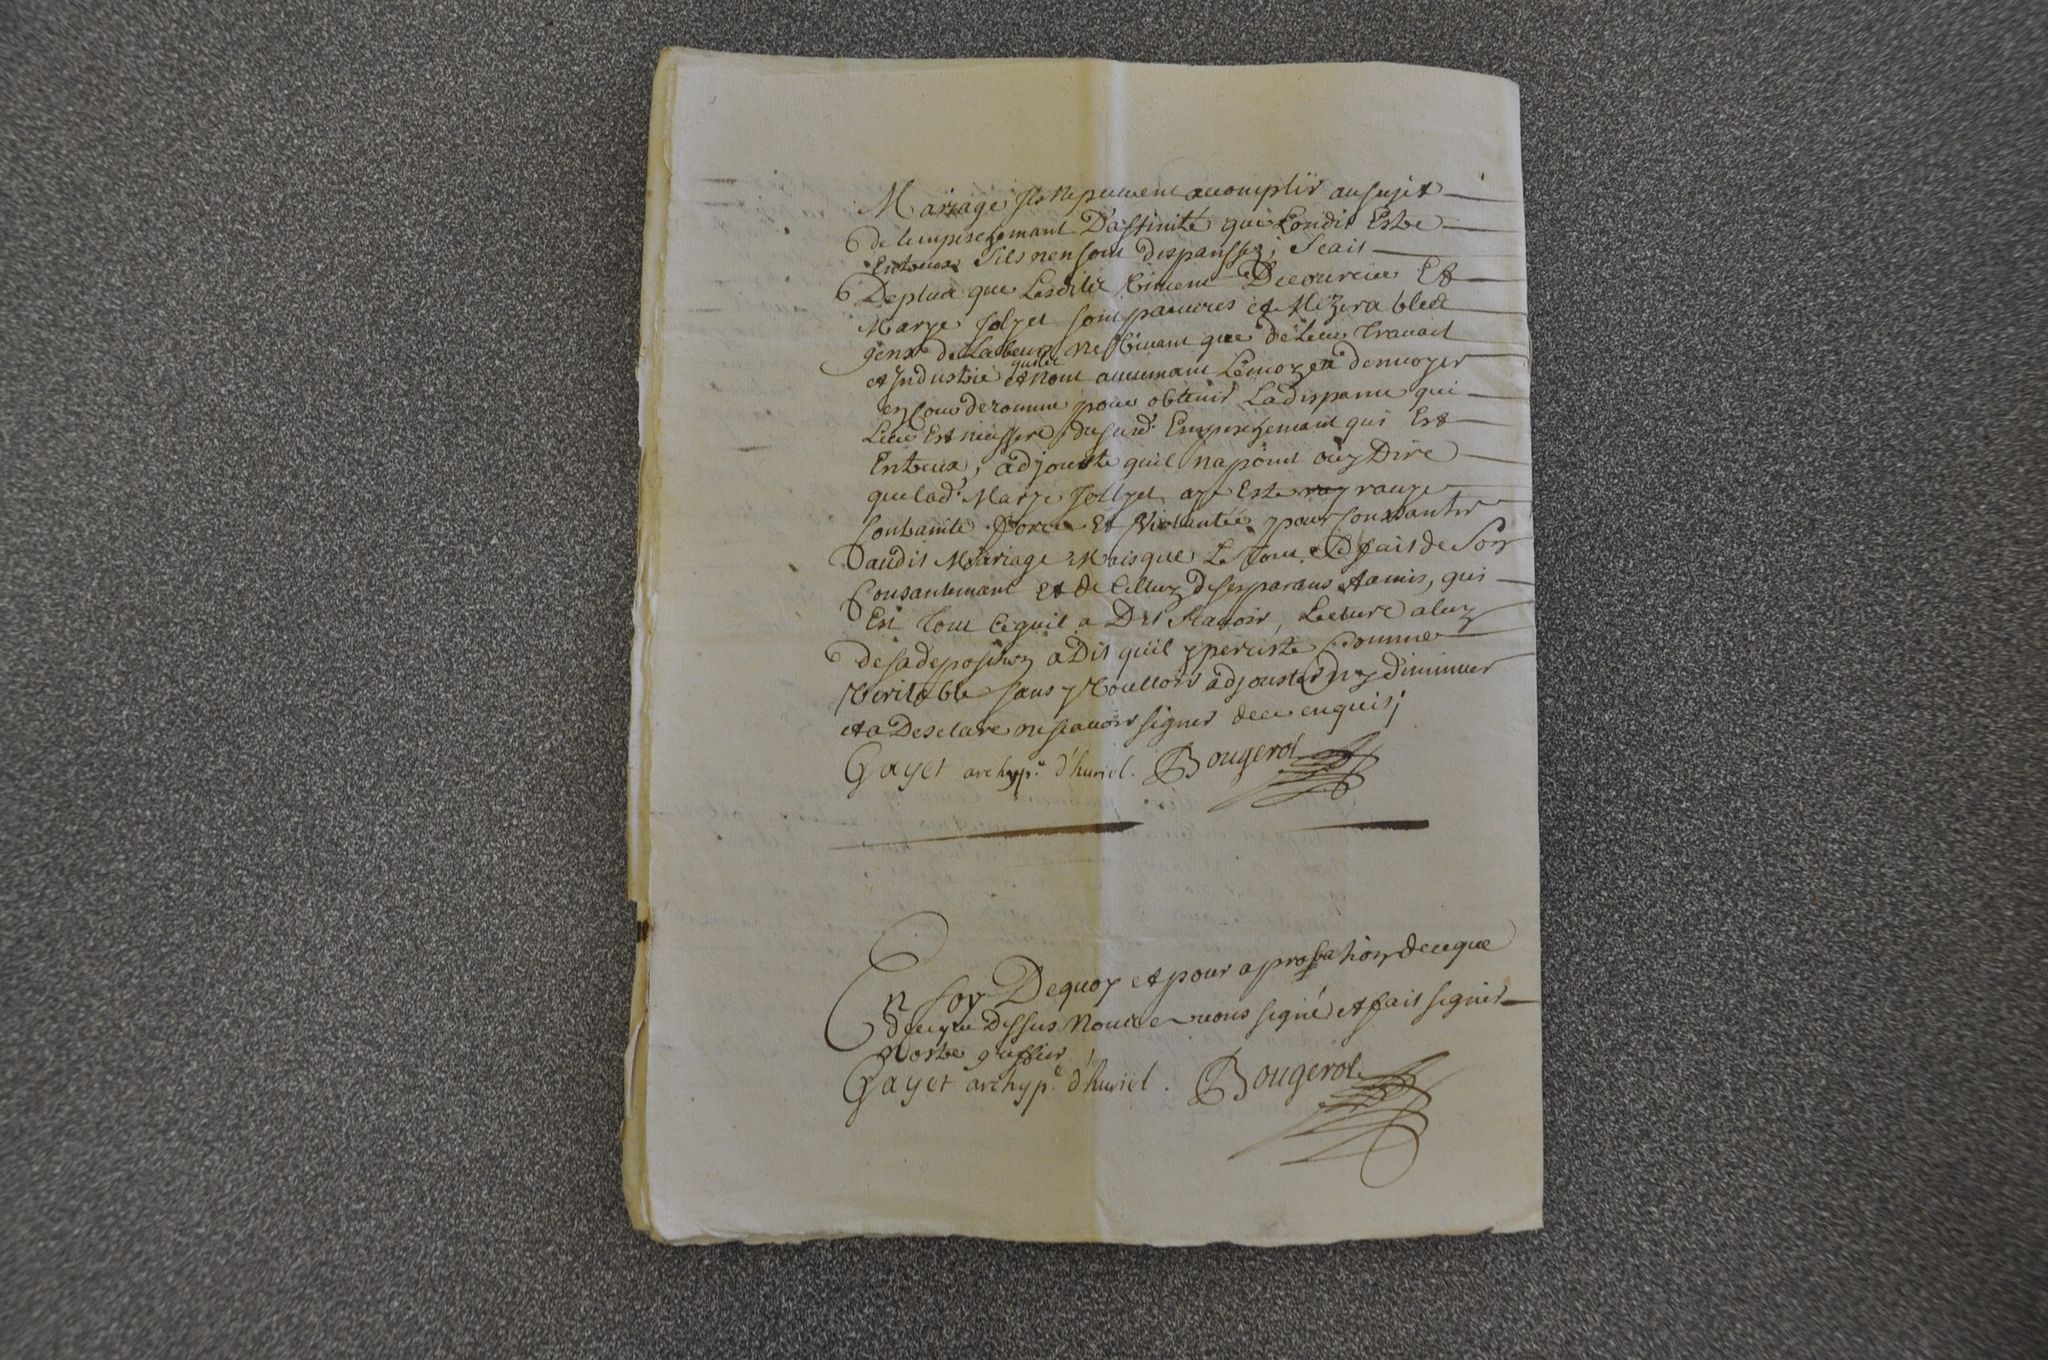 Mariage Ils ne peuvent accomplir au sujet
de lempeschemant Daffinité qui Londit Estre
Entreux Sils nen sont dispanssez, Scait
Deplus que Lesdits Vincent Decourcies Et
Marye Jolyet sont pauvres et Mizerables
gens de Labeurs ne Vivant que de Leur Travail
et Industrie quils et nont aucunemant Lemoyen denvoyer
en Cour de romme pour obtenir La dispance qui
Leur Est necessere dusurd. Empeschemant qui Est
Entreux, adjouste quil na point ouy Dire
que lad. Marye Jollyet aye Esté ravye
Contrainte forcee Et Violantée pour Consantir
audit Mariage Mais que Le Tout Est fait de Son
Consantemant Et de Celluy de ses parans et amis, qui
Est Tout Ce quil a Dit Scavoir, Lecture a luy
de sa deposition a Dit quil y perciste Comme
Veritable sans y Voulloir adjouster ny Diminuer
et a Desclaré ne scavoir signer de ce enquis;
Gayet archyp.e d'huriel. Bougerol
En foy Dequoy et pour aprobation de ce que
de ce que Dessus Nous avons signé et fait signer
Nostre greffier
Gayet archyp.e d'huriel. Bougerol